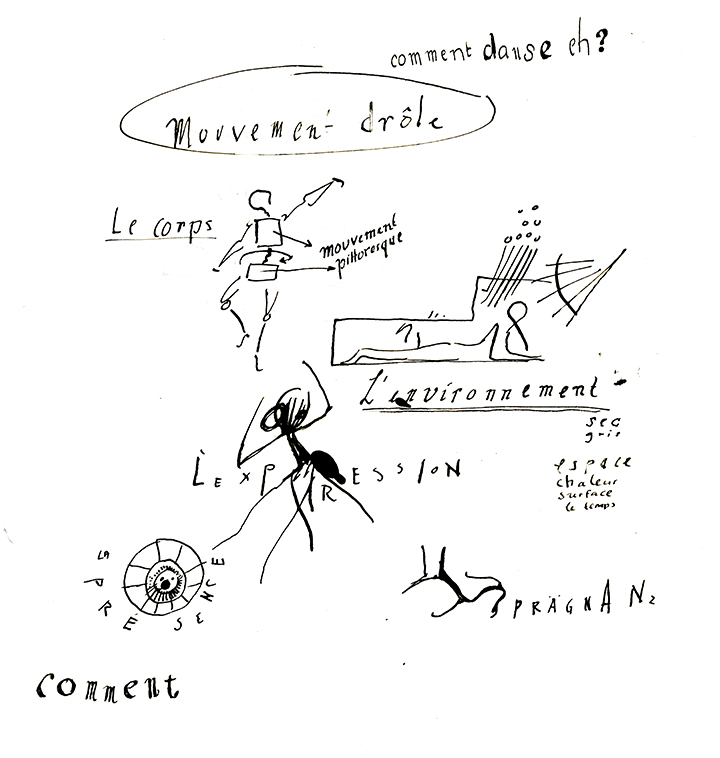 comment danse eh?
Mouvement drôle
Le corps
mouvement
pittoresque
L'environnement
sec
gris
espace
chaleur
surface
le temps
L'EXPRESSION
LA PRÉSENCE
PRÄGNANZ
comment